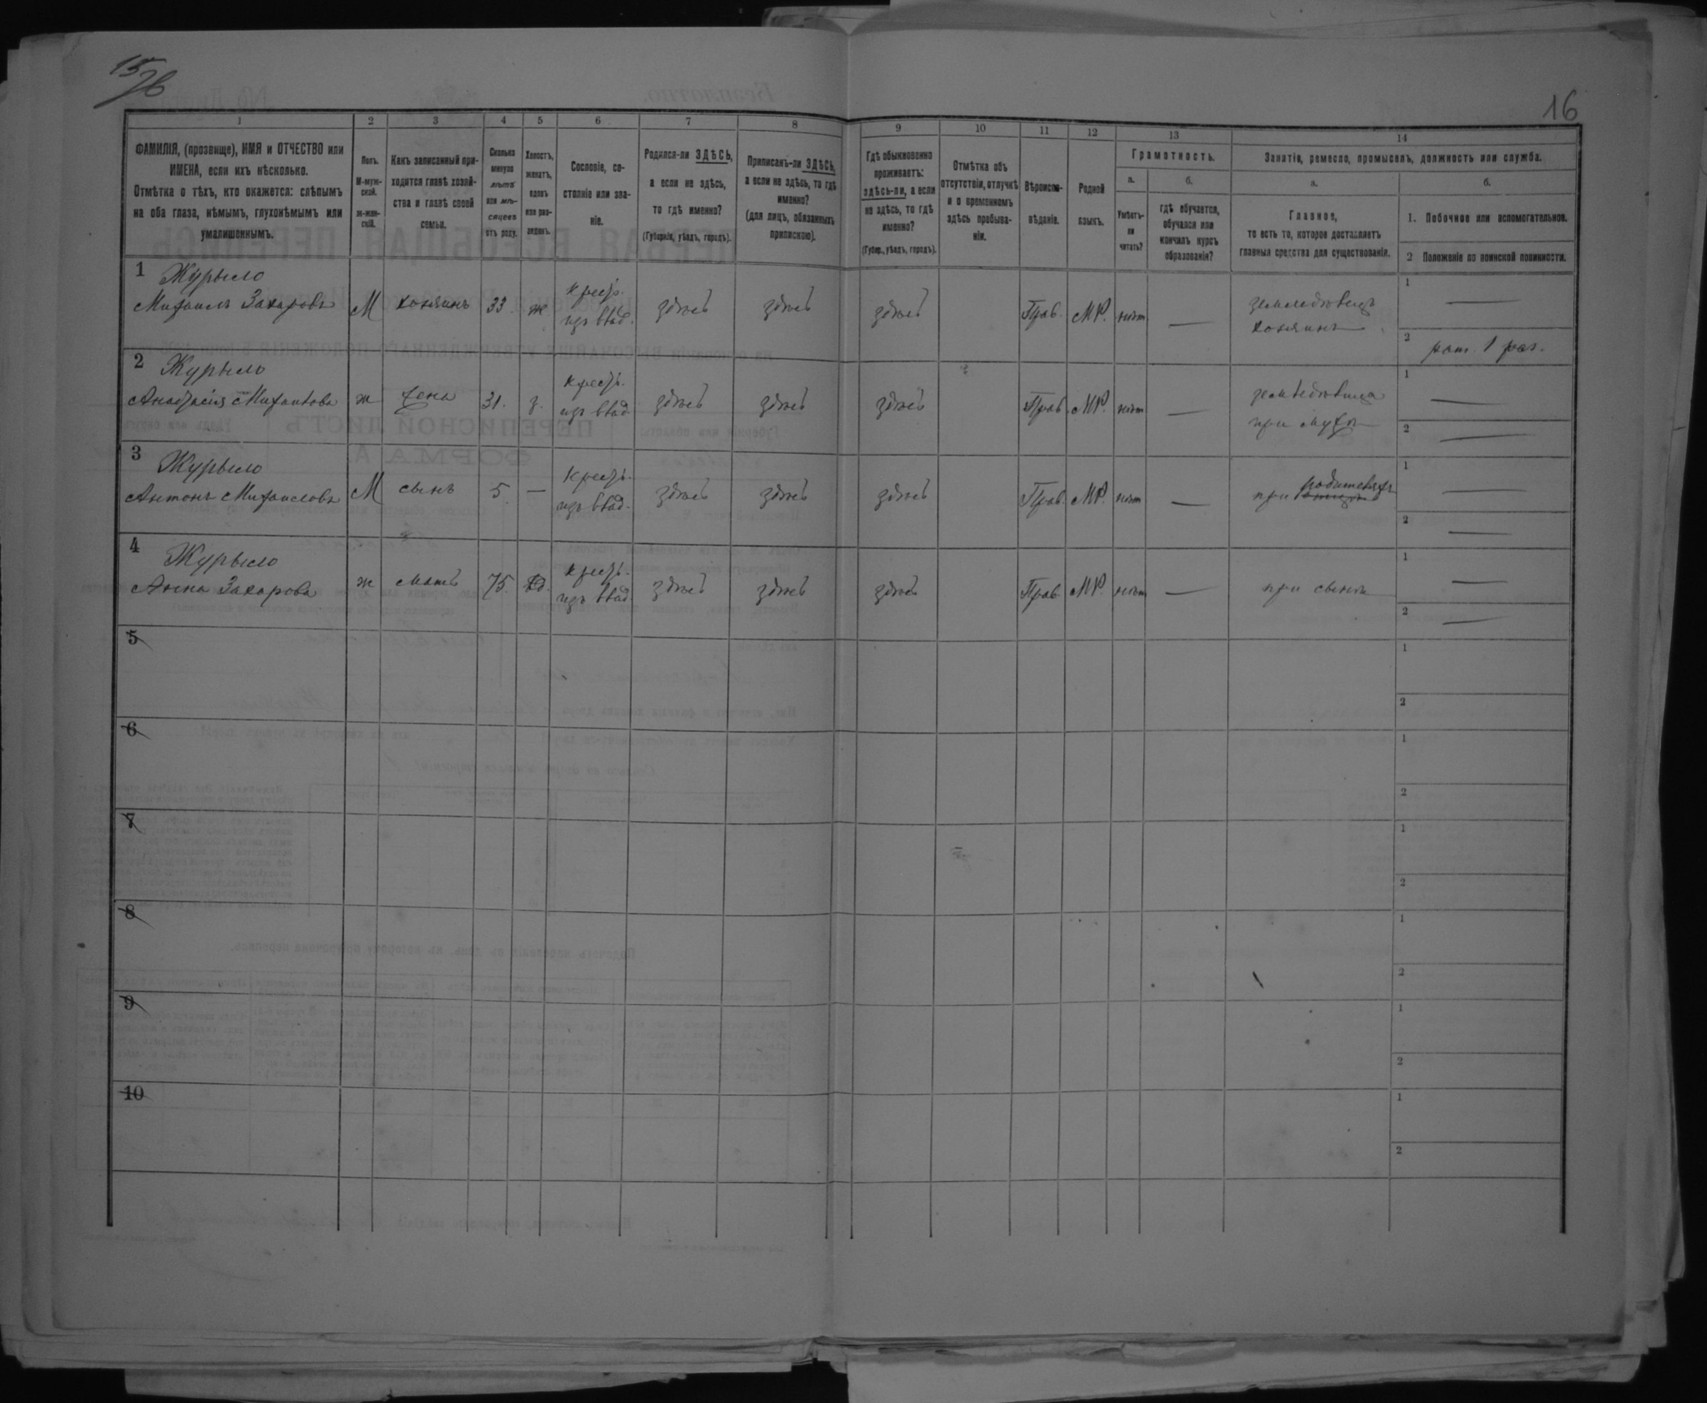 15/16
16
1
2
3
4
5
6
7
8
9
10
11
12
13
14
ФАМИЛІЯ, (прозвище), ИМЯ и ОТЧЕСТВО или
ИМЕНА, если ихъ нѣсколько.
Отмѣтка о тѣхъ, кто окажется: слѣпымъ
на оба глаза, нѣмымъ, глухонѣмымъ или
умалишеннымъ.
Полъ.
М-муж-
ской.
Ж-жен-
скій.
Какъ записанный при-
ходится главѣ хозяй-
ства и главѣ своей
семьи.
Сколько
минуло
лѣтъ
или мѣ-
сяцевъ
отъ роду.
Холостъ,
женатъ,
вдовъ
или раз-
веденъ.
Сословіе, со-
стояніе или зва-
ніе.
Родился-ли ЗДѢСЬ,
а если не здѣсь,
то гдѣ именно?
(Губернія, уѣздъ, городъ).
Приписанъ-ли ЗДѢСЬ,
а если не здѣсь, то гдѣ
именно?
(для лицъ, обязанныхъ
припискою).
Гдѣ обыкновенно
проживаетъ:
здѣсь-ли, а если
не здѣсь, то гдѣ
именно?
(Губер., уѣздъ, городъ).
Отмѣтка объ
отсутствіи, отлучкѣ
и о временномъ
здѣсь пребыва-
ніи.
Вѣроиспо-
вѣданіе.
Родной
языкъ.
Грамотность.
а.
Умѣетъ-
ли
читать?
б.
гдѣ обучается,
обучался или
кончилъ курсъ
образованія?
Занятіе, ремесло, промыселъ, должность или служба.
а.
Главное,
то есть то, которое доставляетъ
главныя средства для существованія.
б.
1. Побочное или вспомогательное.
2 Положеніе по воинской повинности.
1 Журыло
Михаилъ Захаровъ М хозяинъ 33 ж крест. изъ влад. здѣсь здѣсь здѣсь Прав. МР. нѣтъ — земледѣлецъ
хозяинъ
1 —
2 рат. 1 раз.
2 Журыло
Анастасія Михаилова ж жена 31. з. крест. изъ влад. здѣсь здѣсь здѣсь Прав МР. нѣтъ —
при мужѣ
1 —
2 —
3 Журыло
Антонъ Михаиловъ М сынъ 5 — крест. изъ влад. здѣсь здѣсь здѣсь Прав МР. нѣтъ — при родителяхъ
1 —
2 —
4 Журыло
Анна Захарова ж мать 75. вд. крест. изъ влад. здѣсь здѣсь здѣсь Прав МР. нѣтъ — при сынѣ
1 —
2 —
5
1
2
6
1
2
7
1
2
8
1
2
9
1
2
10
1
2